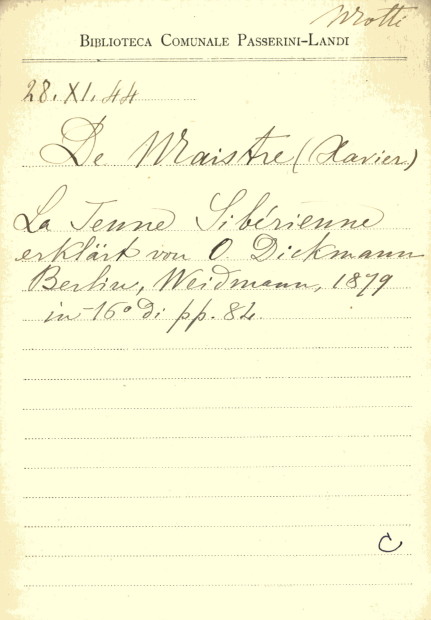 BIBLIOTECA COMUNALE PASSERINI-LANDI
28.XI.44
De Maistre (Xavier)
La Jeune Sibérienne
erklärt von O. Dickmann
Berlin, Weidmann, 1879
in-16° di pp. 84
C